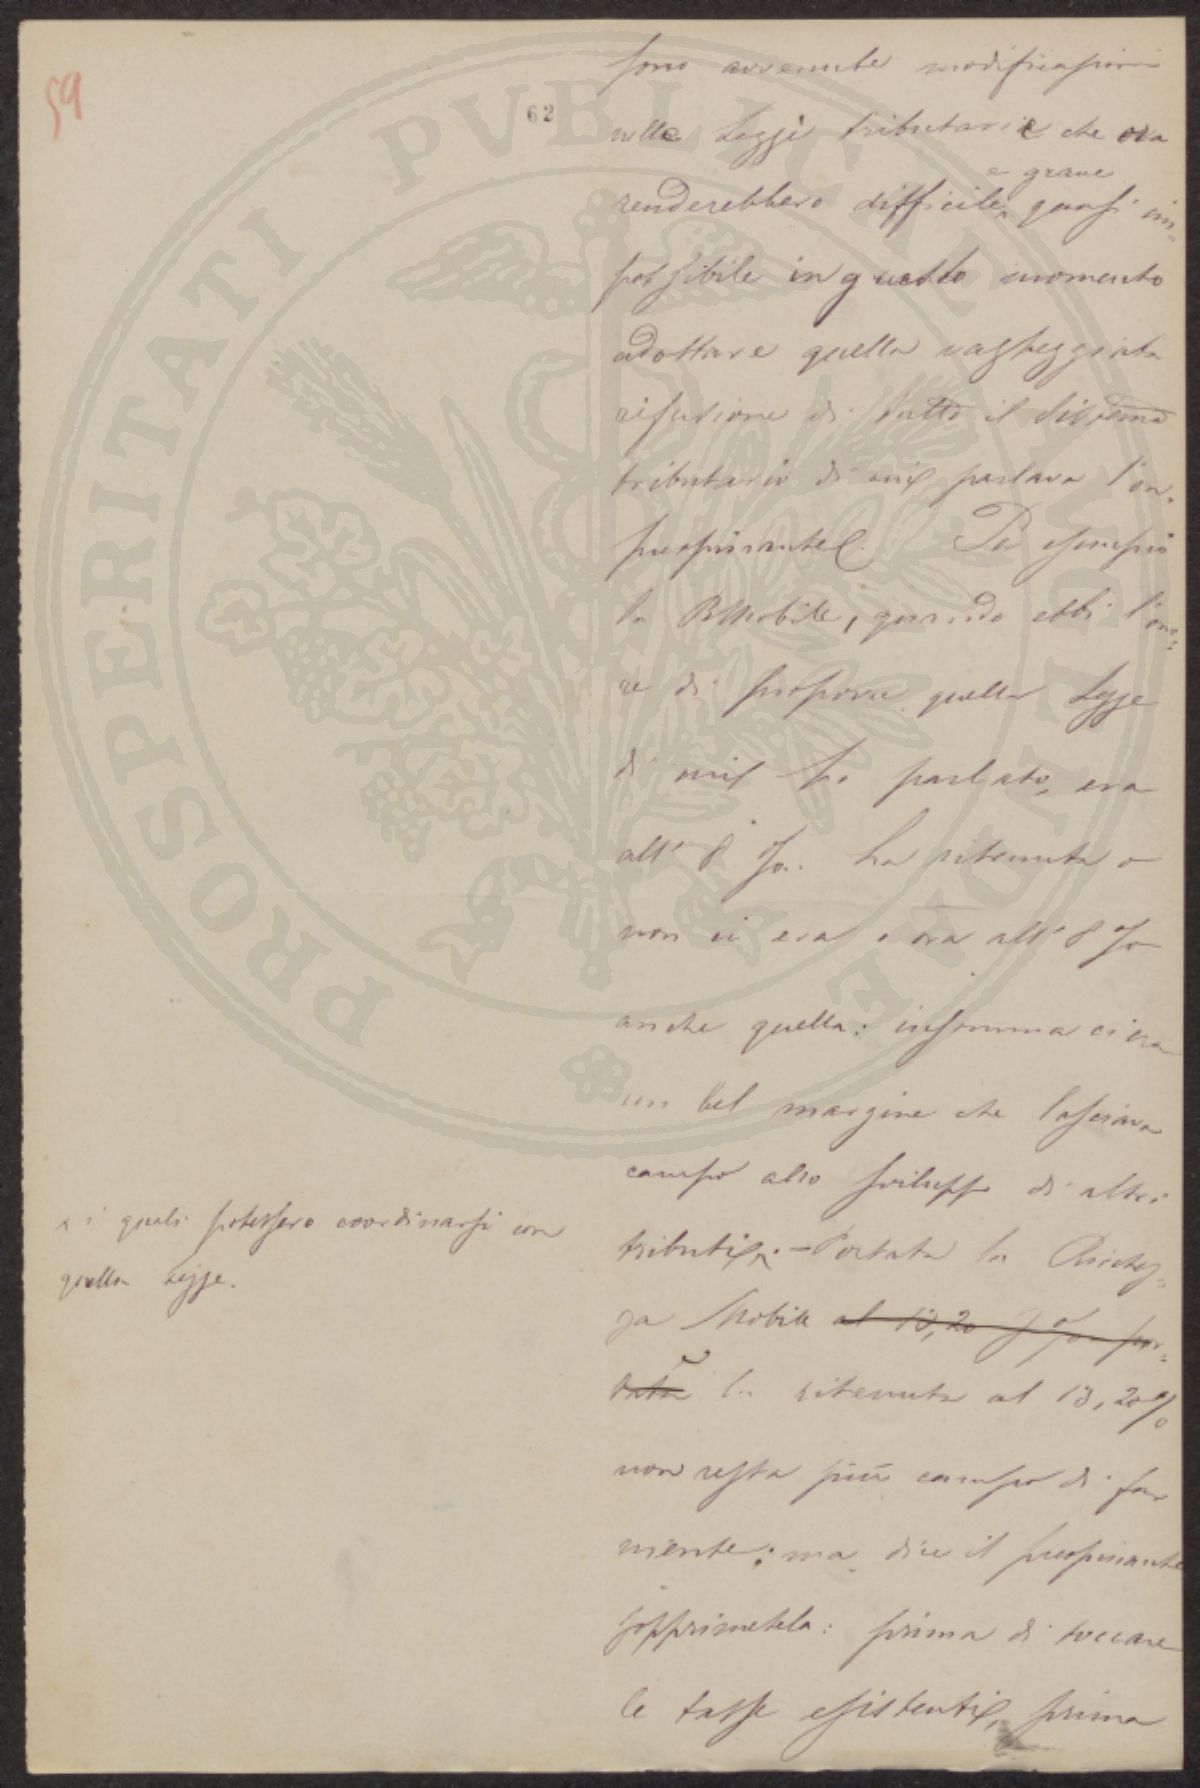 59
62
sono avvenute modificazioni
nelle Leggi tributarie che ora
e grave
renderebbero difficile, quasi im-
possibile in questo momento
adottare quella vagheggiata
rifusione di tutto il sistema
tributario di cui parlava l'on.
preopinante. Per esempio
la RMobile, quando ebbi l'ono-
re di proporre quella Legge
di cui ho parlato, era
all' 8 %. La ritenuta o
non ci era o era all' 8 %
anche quella: insomma ci era
un bel margine che lasciava
campo allo sviluppo di altri
tributi. - Portata la Ricchez-
za Mobile al 13,20 % por-
tata la ritenuta al 13,20 %
non resta più campo di far
niente: ma dice il preopinante
sopprimetela: prima di toccare
le tasse esistenti, prima
i quali potessero coordinarsi con
quella Legge.
PROSPERITATI PVBLICAE